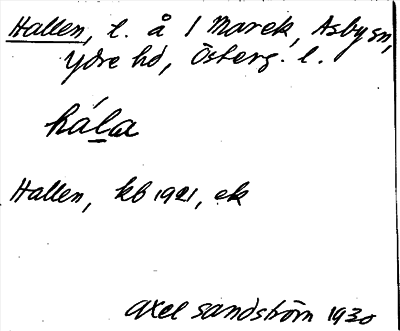 Hallen, l. å 1 Marek, Asby sn,
Ydre hd, Österg. l.
hála
Hallen, kb 1921, ek
Axel Sandström 1930